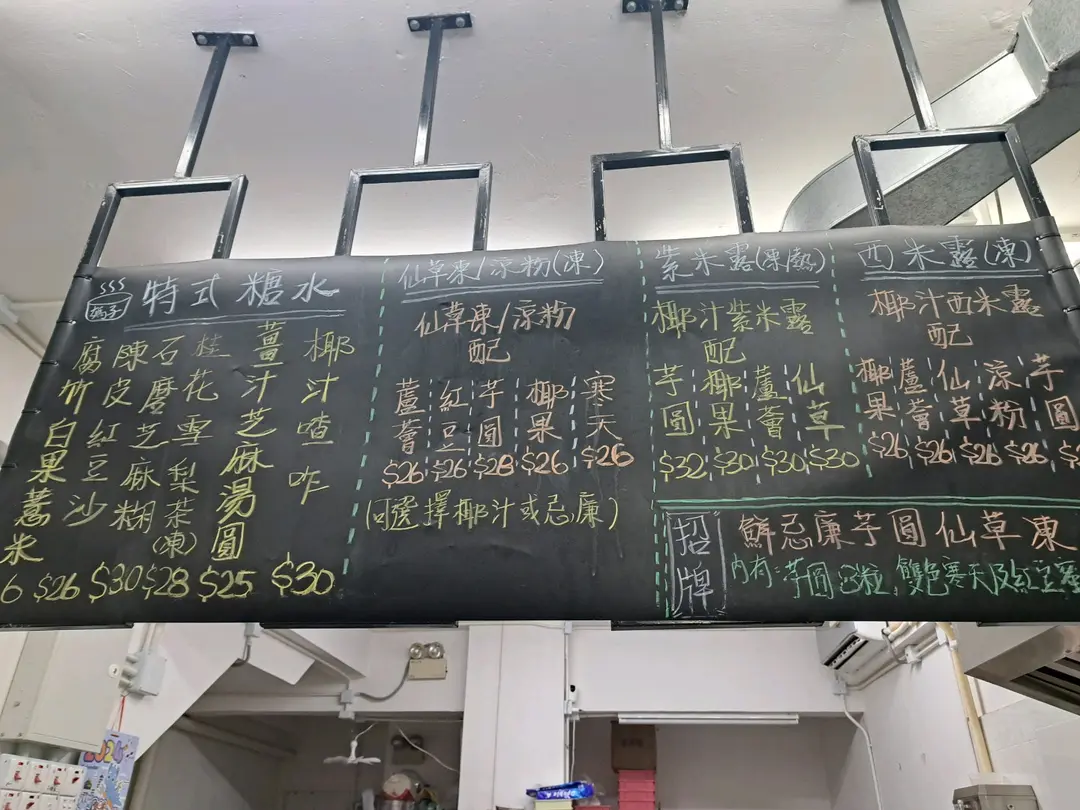 特式糖水
椰汁喳咋 $30
薑汁芝麻湯圓 $25
桂花雪梨茶(凍) $28
石磨芝麻糊 $30
陳皮紅豆沙 $26
腐竹白果薏米 6
仙草凍/涼粉(凍)
仙草凍/涼粉
配
蘆薈 $26
紅豆 $26
芋圓 $28
椰果 $26
寒天 $26
(可選擇椰汁或忌廉)
紫米露(凍/熱)
椰汁紫米露
配
芋圓 $32
椰果 $30
蘆薈 $30
仙草 $30
西米露(凍)
椰汁西米露
配
椰果 $26
蘆薈 $26
仙草 $26
涼粉 $26
芋圓
招牌
鮮忌廉芋圓仙草凍
內有:芋圓3粒,雙色寒天及紅豆